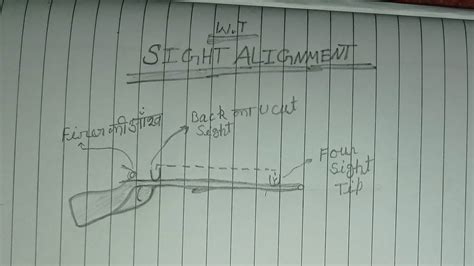 W.T
SIGHT ALIGNMENT
Firer की आँख
Back का U cut
Sight
Four
Sight
Tip